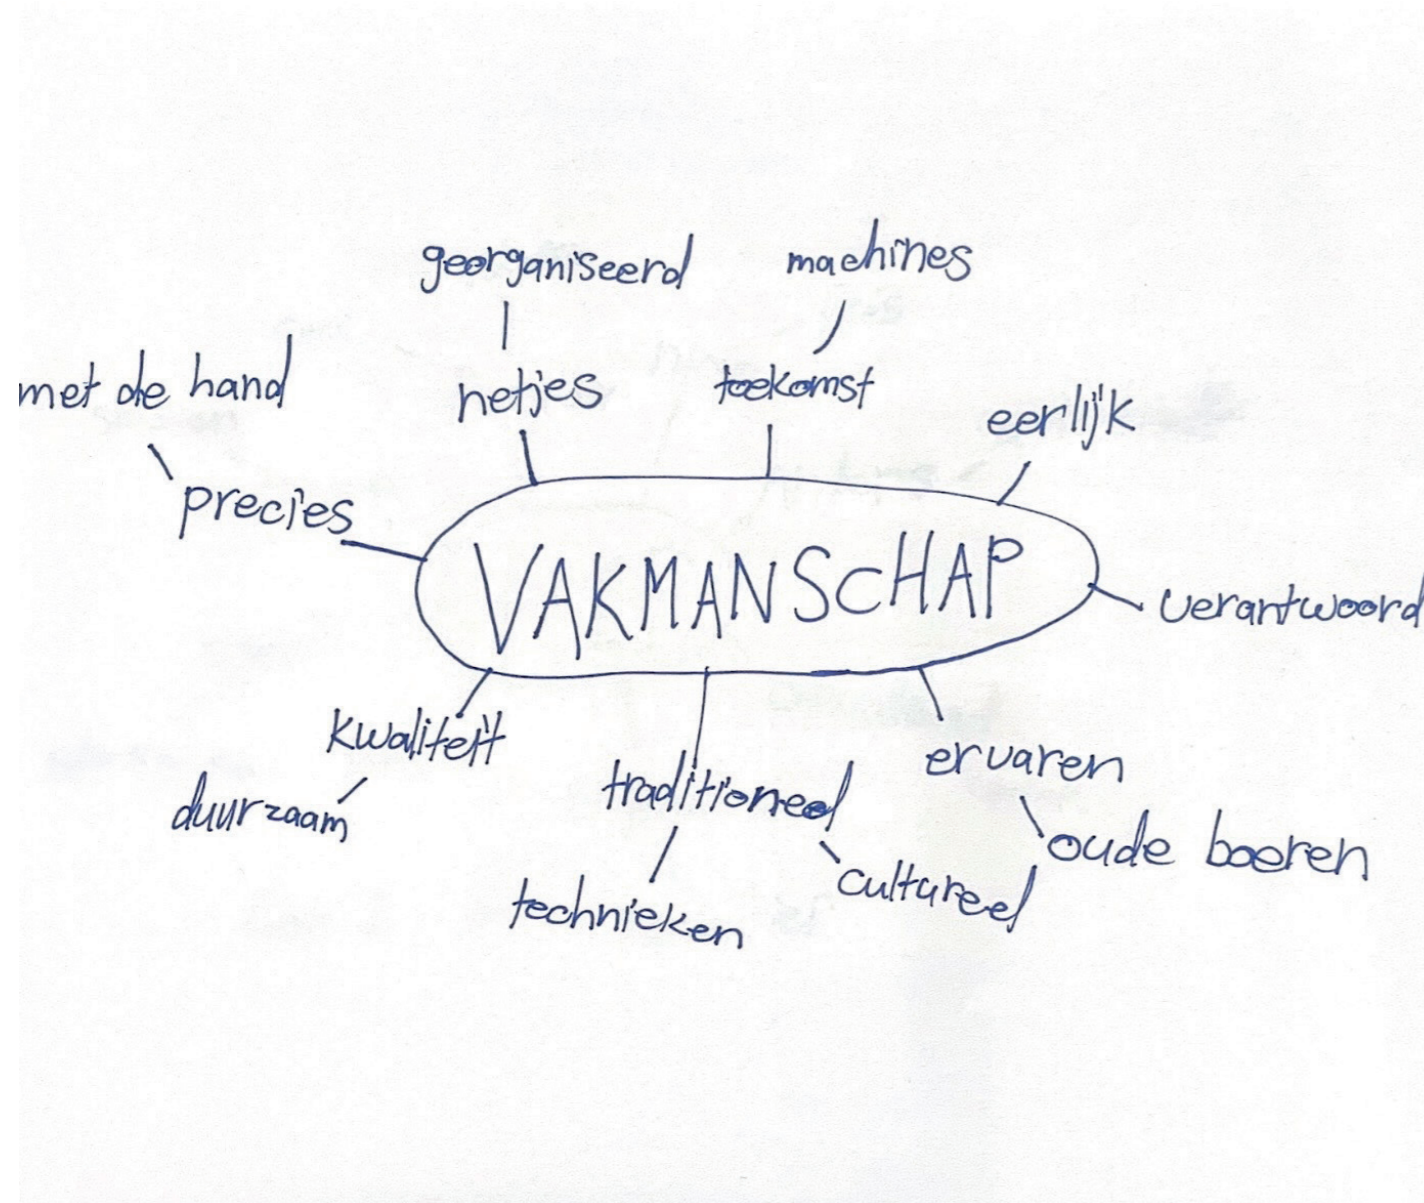 georganiseerd
machines
met de hand
netjes
toekomst
eerlijk
precies
VAKMANSCHAP
verantwoord
kwaliteit
ervaren
duurzaam
traditioneel
oude boeren
technieken
cultureel